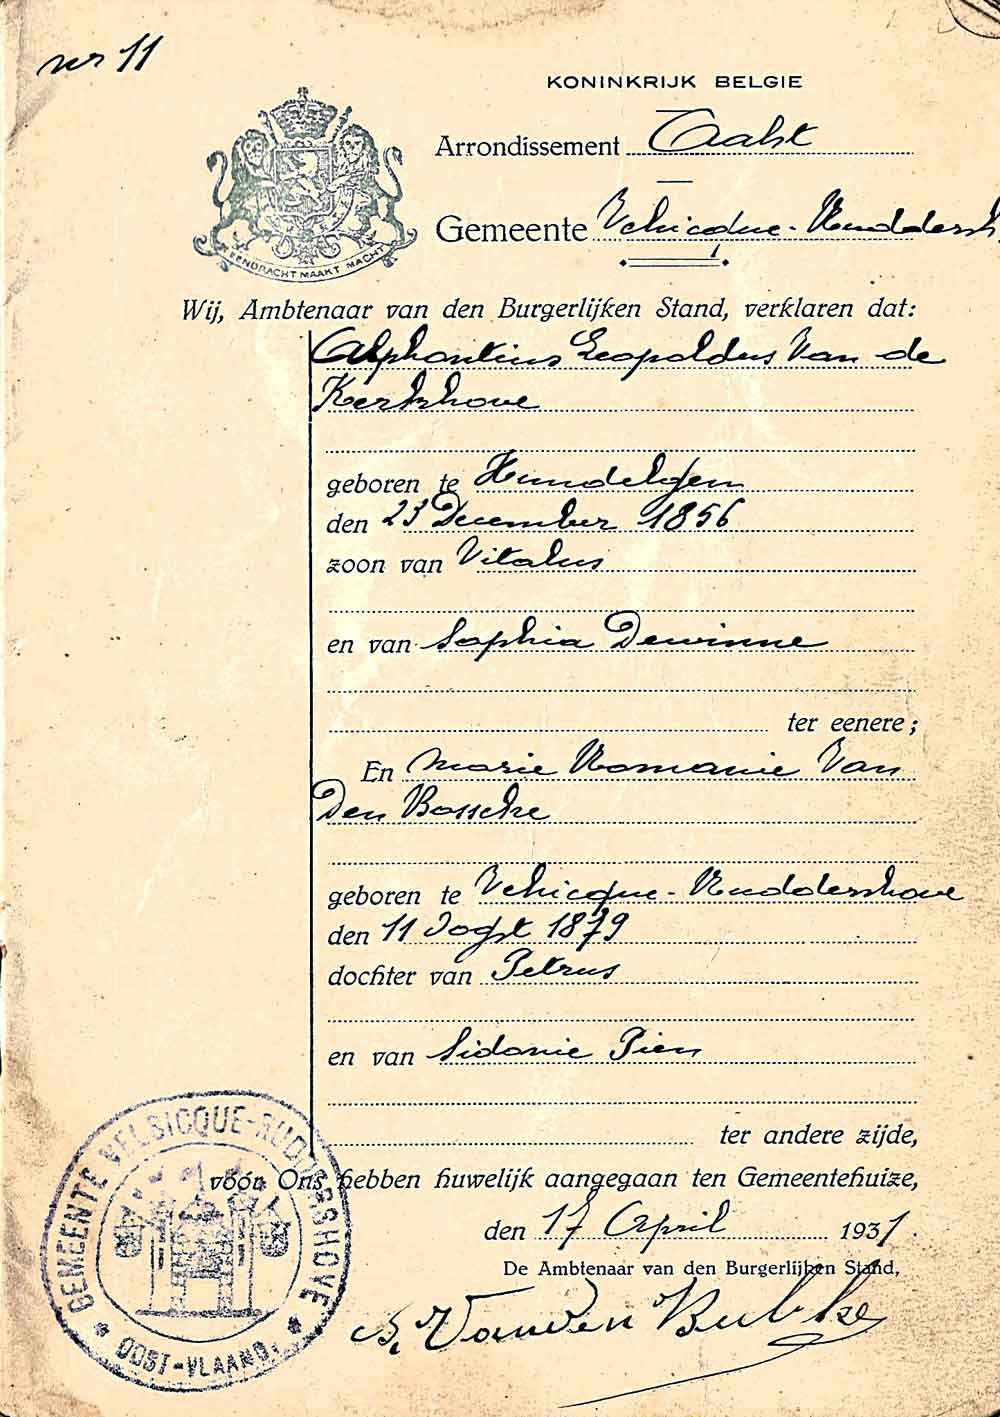 nr 11
KONINKRIJK BELGIE
Arrondissement Aalst
EENDRACHT MAAKT MACHT
Gemeente Velsicque-Ruddersh.
Wij, Ambtenaar van den Burgerlijken Stand, verklaren dat:
Alphontius Leopoldus Van de
Kerkhove
geboren te Hundelgem
den 23 December 1856
zoon van Vitalus
en van Sophia Dewinne
ter eenere;
En Marie Romanie Van
Den Bossche
geboren te Velsicque-Ruddershove
den 11 Oogst 1879
dochter van Petrus
en van Sidonie Pien
ter andere zijde,
vóór Ons hebben huwelijk aangegaan ten Gemeentehuize,
den 17 April 1931.
De Ambtenaar van den Burgerlijken Stand,
GEMEENTE VELSICQUE-RUDDERSHOVE
* OOST-VLAAND. *